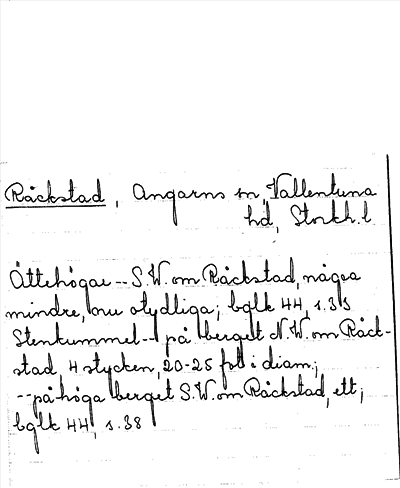 Råckstad, Angarns sn, Vallentuna
hd, Stockh. l
Ättehögar -- S.W. om Råckstad, några
mindre, nu otydliga; bglk 44, s. 38
Stenkummel -- på berget N.W. om Råck-
stad 4 stycken, 20-25 fot i diam;
-- på höga berget S.W. om Råckstad, ett;
bglk 44, s. 38